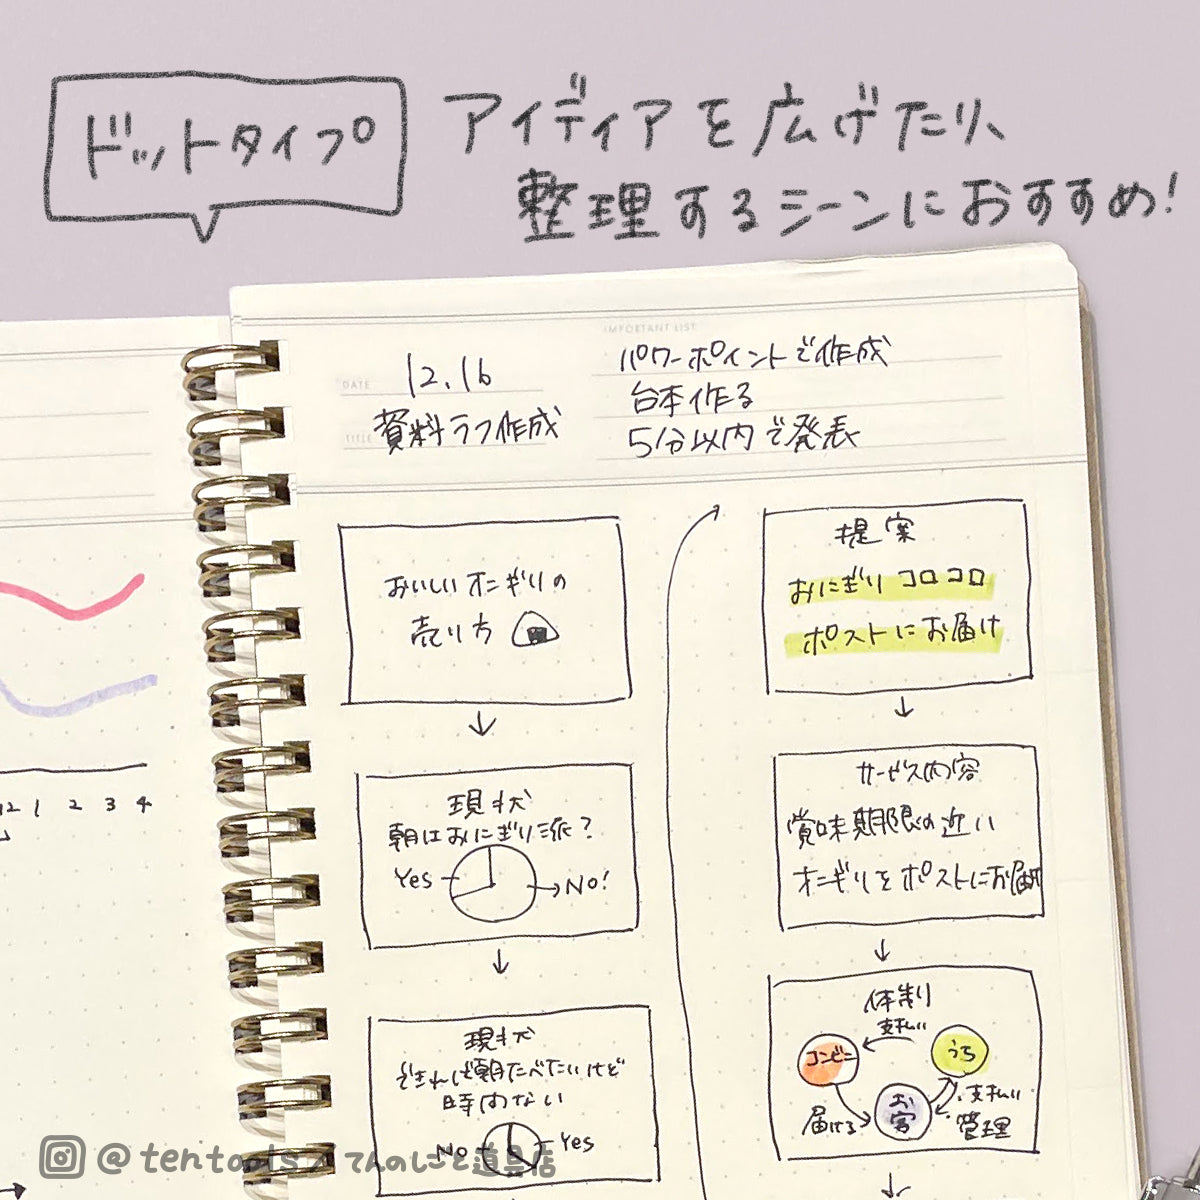 ドットタイプ
アイディアを広げたり、
整理するシーンにおすすめ!
DATE 12.16
TITLE 資料ラフ作成
IMPORTANT LIST
パワーポイントで作成
台本作る
5分以内で発表
おいしいオニギリの
売り方
現状
朝はおにぎり派?
Yes
No!
現状
できれば朝たべたいけど
時間ない
No
Yes
提案
おにぎりコロコロ
ポストにお届け
サービス内容
賞味期限の近い
オニギリをポストにお届け
体制
支払い
コンビニ
うち
お客
届ける
支払い
管理
12 1 2 3 4
@tentools / てんのしごと道具店